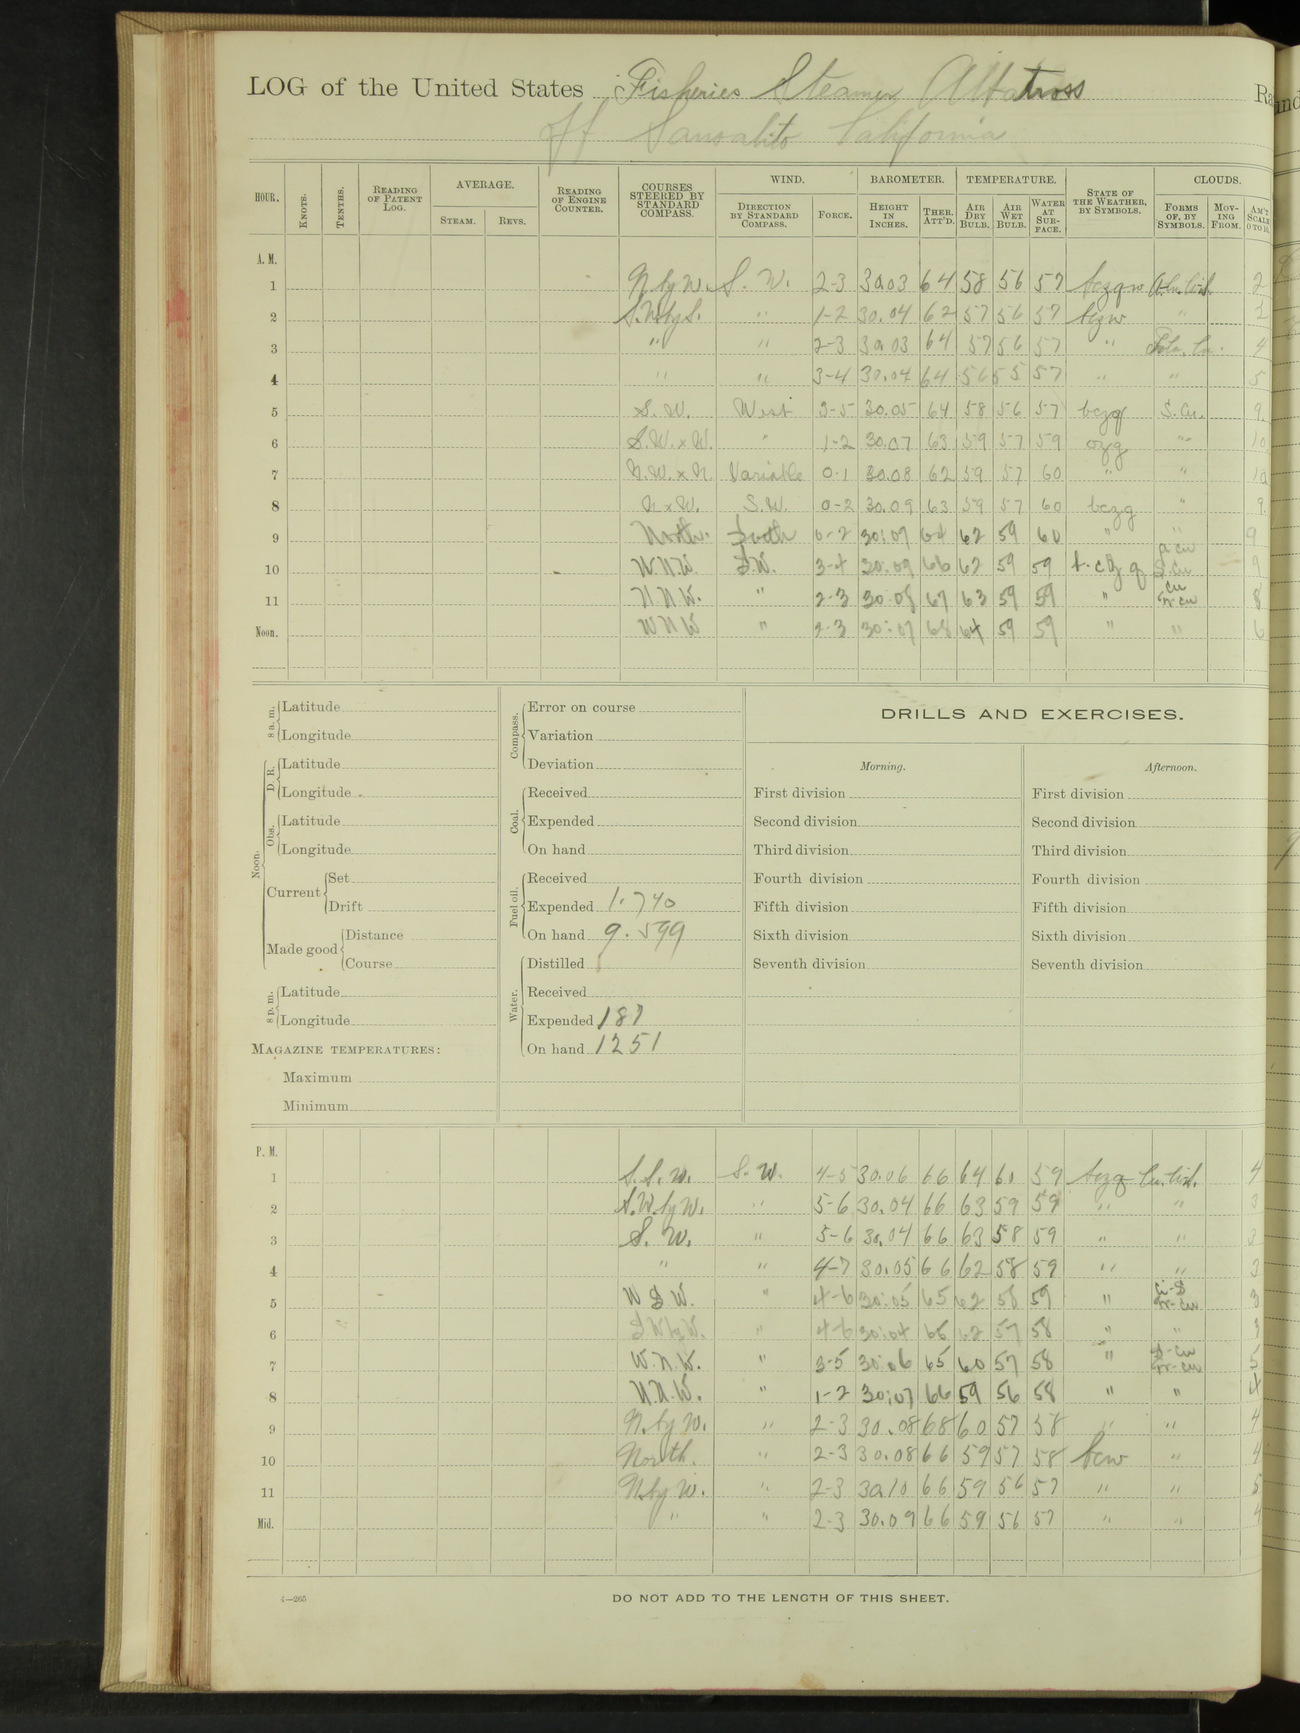 LOG of the United States Fisheries Steamer Albatross Ra
off Sausalito California
HOUR. KNOTS. TENTHS. READING OF PATENT LOG. AVERAGE. STEAM. REVS. READING OF ENGINE COUNTER. COURSES STEERED BY STANDARD COMPASS. WIND. DIRECTION BY STANDARD COMPASS. FORCE. BAROMETER. HEIGHT IN INCHES. THER. ATT'D. TEMPERATURE. AIR DRY BULB. AIR WET BULB. WATER AT SUR-FACE. STATE OF THE WEATHER, BY SYMBOLS. CLOUDS. FORMS OF, BY SYMBOLS. MOV-ING FROM. AM'T SCALE 0 TO 10.
A. M.
1 N. by W. S. W. 2-3 30.03 64 58 56 57 bczqw 2
2 S.W. by S. " 1-2 30.04 62 57 56 57 bczw " 2
3 " " 2-3 30.03 64 57 56 57 " 4
4 " " 3-4 30.04 64 56 55 57 " " 5
5 S. W. West 3-5 30.05 64 58 56 57 bczq S. Cu. 9
6 S.W. x W. " 1-2 30.07 63 59 57 59 ozg " 10
7 N.W. x N. Variable 0-1 30.08 62 59 57 60 " " 10
8 N x W. S.W. 0-2 30.09 63 59 57 60 bczg " 9
9 North. South 0-2 30.09 64 62 59 60 " " 9
10 WNW. SW. 3-4 30.09 66 62 59 59 b.c.z.q a-cu S.cu 9
11 NNW. " 2-3 30.08 67 63 59 59 " cu fr-cu 8
Noon. WNW " 2-3 30.07 68 64 59 59 " " 6
8 a. m. Latitude
Longitude
Noon. D. R. Latitude
Longitude
Obs. Latitude
Longitude
Current Set
Drift
Made good Distance
Course
8 p. m. Latitude
Longitude
MAGAZINE TEMPERATURES:
Maximum
Minimum
Compass. Error on course
Variation
Deviation
Coal. Received
Expended
On hand
Fuel oil. Received
Expended 1.740
On hand 9.599
Water. Distilled
Received
Expended 187
On hand 1251
DRILLS AND EXERCISES.
Morning.
First division
Second division
Third division
Fourth division
Fifth division
Sixth division
Seventh division
Afternoon.
First division
Second division
Third division
Fourth division
Fifth division
Sixth division
Seventh division
P. M.
1 S.S.W. S. W. 4-5 30.06 66 64 60 59 bczq Cu. Cir-S. 4
2 S.W. by W. " 5-6 30.04 66 63 59 59 " " 3
3 S. W. " 5-6 30.04 66 63 58 59 " " 3
4 " " 4-7 30.05 66 62 58 59 " " 3
5 WSW. " 4-6 30.05 65 62 58 59 " ci-S fr-cu 3
6 SW by W. " 4-6 30.04 65 62 57 58 " " 3
7 W.N.W. " 3-5 30.06 65 60 57 58 " S-cu fr-cu 5
8 N.N.W. " 1-2 30.07 66 59 56 58 " " 4
9 N. by W. " 2-3 30.08 68 60 57 58 " " 4
10 North. " 2-3 30.08 66 59 57 58 bcw " 4
11 N. by W. " 2-3 30.10 66 59 56 57 " " 5
Mid. " " 2-3 30.09 66 59 56 57 " " 4
4—265
DO NOT ADD TO THE LENGTH OF THIS SHEET.